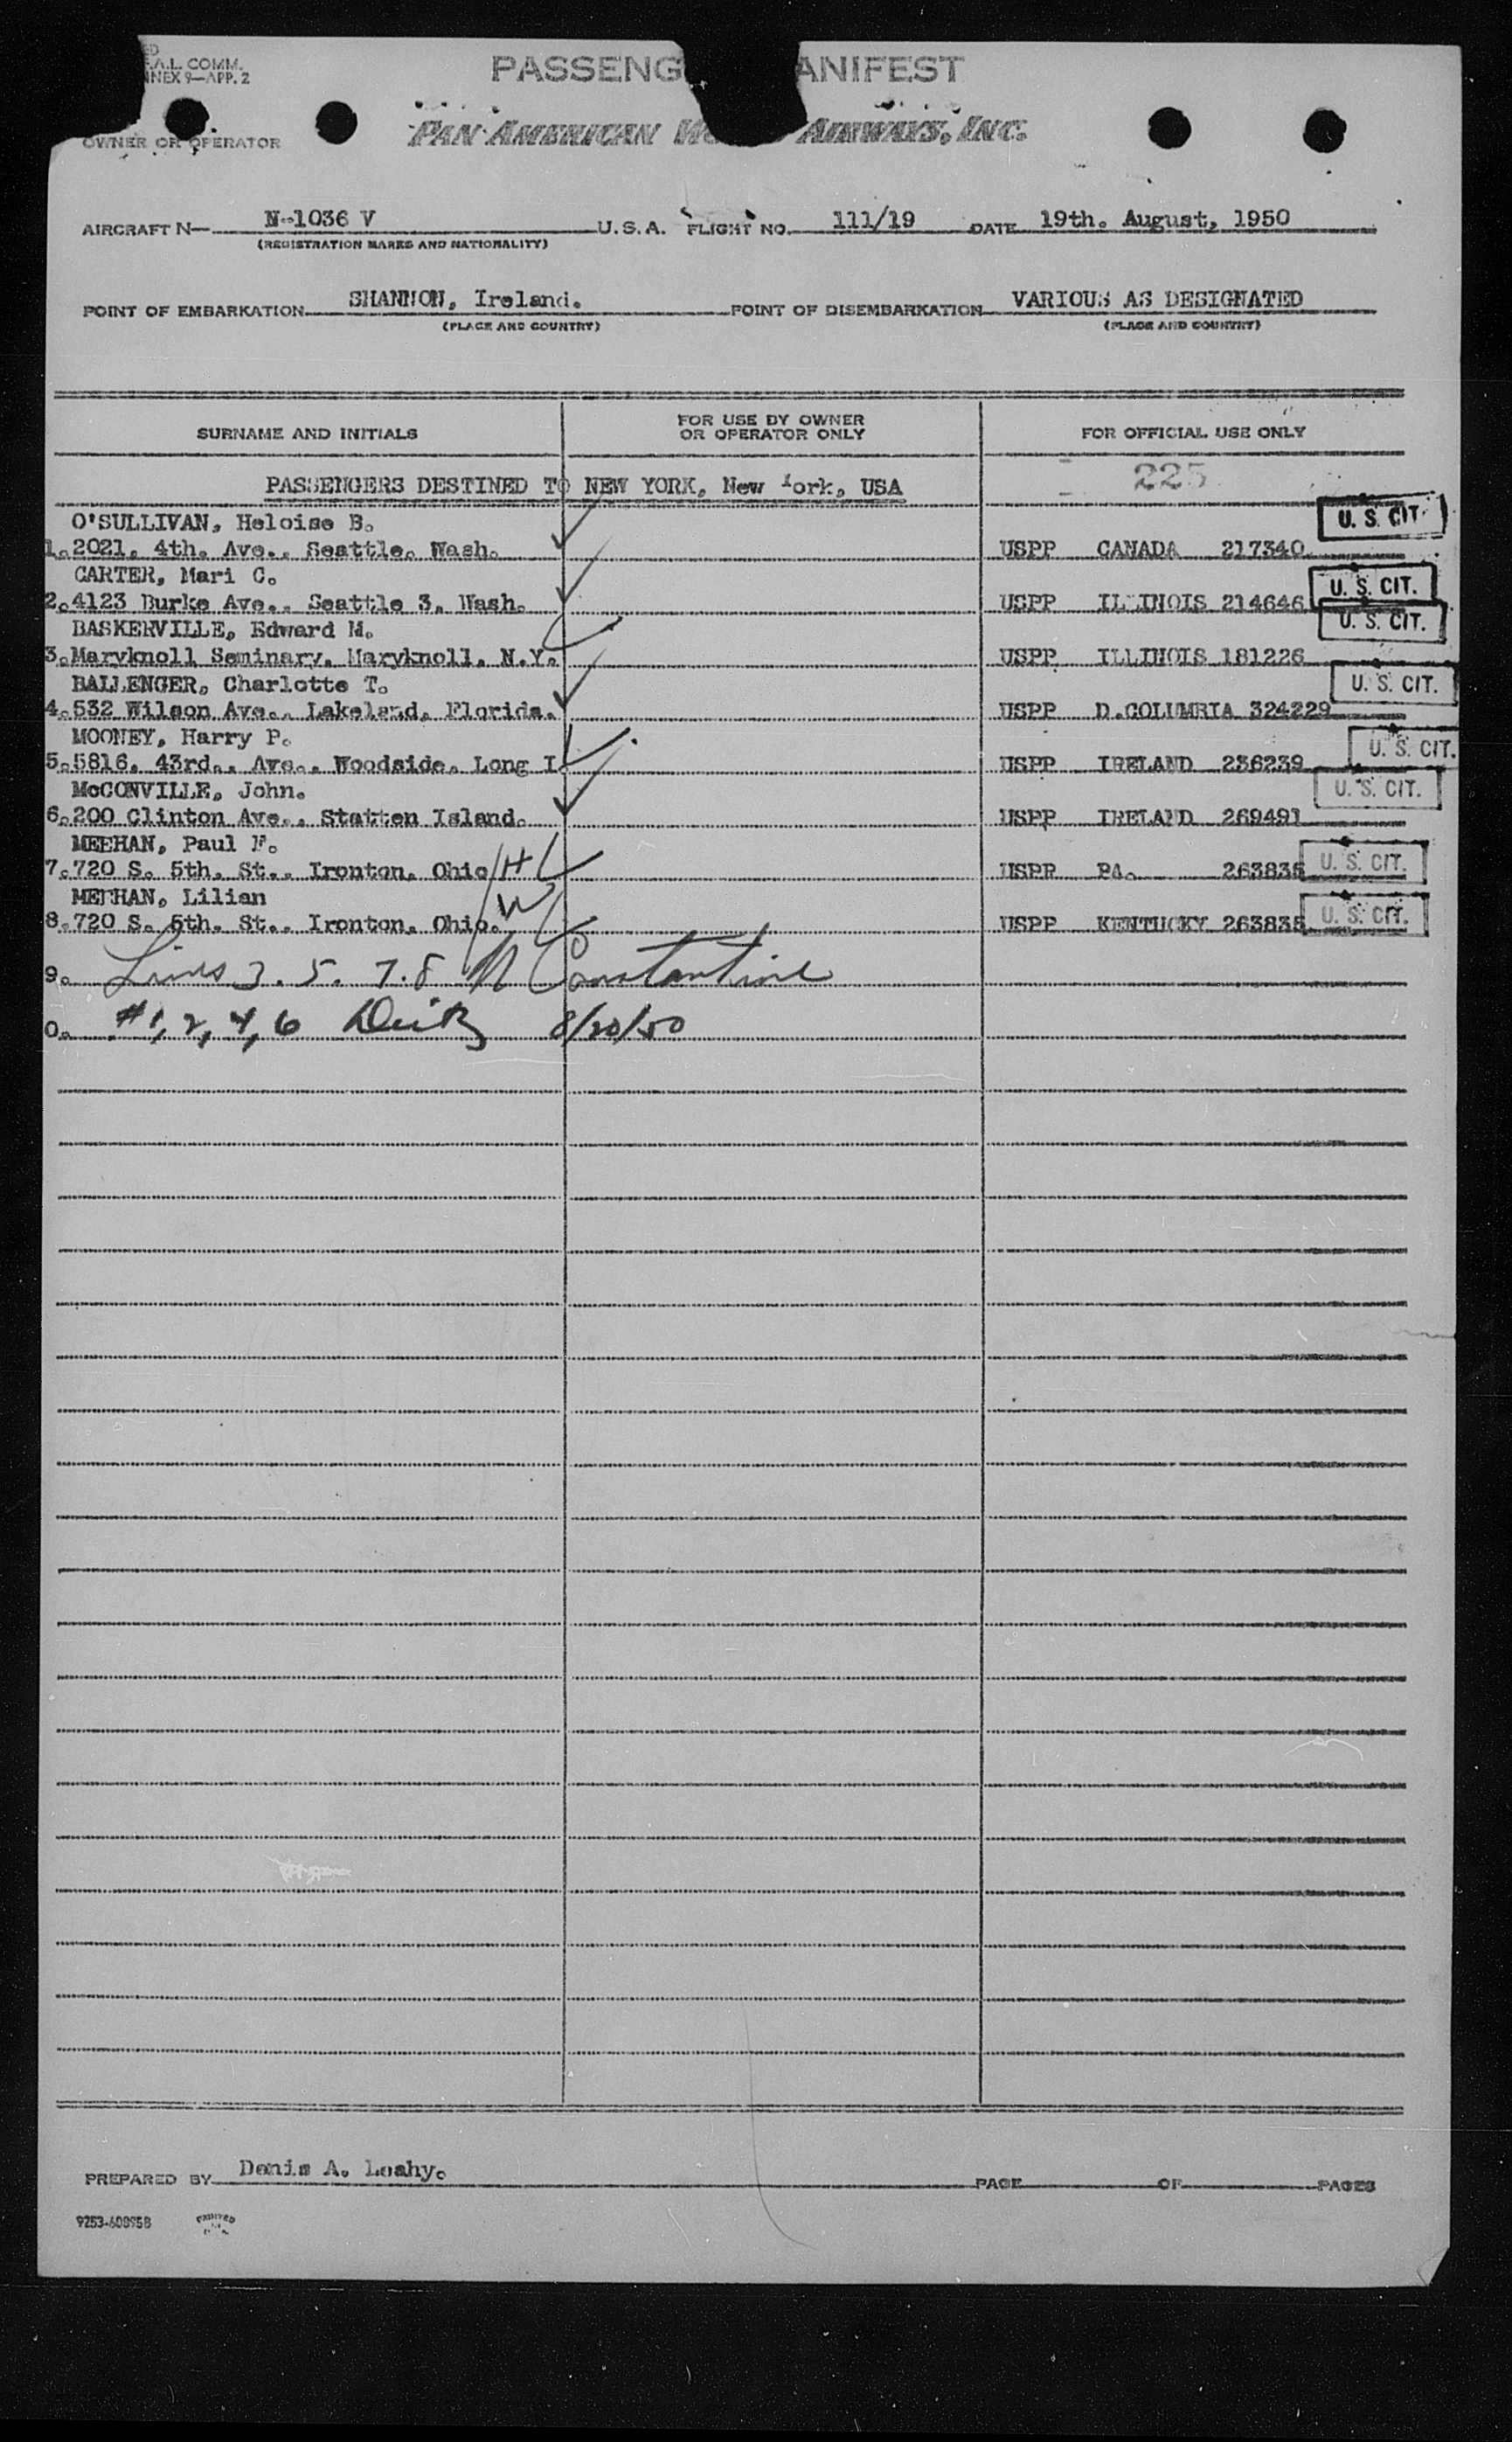 ED
F.A.L. COMM.
NNEX 9—APP. 2
PASSENG ANIFEST
OWNER OR OPERATOR
PAN AMERICAN WO AIRWAYS, INC.
AIRCRAFT N— N-1036 V U.S.A. FLIGHT NO. 111/19 DATE 19th. August, 1950
(REGISTRATION MARKS AND NATIONALITY)
POINT OF EMBARKATION SHANNON, Ireland. POINT OF DISEMBARKATION VARIOUS AS DESIGNATED
(PLACE AND COUNTRY) (PLACE AND COUNTRY)
SURNAME AND INITIALS FOR USE BY OWNER OR OPERATOR ONLY FOR OFFICIAL USE ONLY
225
PASSENGERS DESTINED TO NEW YORK, New York, USA
O'SULLIVAN, Heloise B. U. S. CIT.
1. 2021, 4th. Ave., Seattle, Wash. USPP CANADA 217340
CARTER, Mari C. U. S. CIT.
2. 4123 Burke Ave., Seattle 3, Wash. USPP ILLINOIS 214646
BASKERVILLE, Edward M. U. S. CIT.
3. Maryknoll Seminary, Maryknoll, N.Y. USPP ILLINOIS 181226
BALLENGER, Charlotte T. U. S. CIT.
4. 532 Wilson Ave., Lakeland, Florida. USPP D.COLUMBIA 324229
MOONEY, Harry P. U. S. CIT.
5. 5816, 43rd., Ave., Woodside, Long I. USPP IRELAND 236239
McCONVILLE, John. U. S. CIT.
6. 200 Clinton Ave., Statten Island. USPP IRELAND 269491
MEEHAN, Paul F.
7. 720 S. 5th. St., Ironton, Ohio H USPP PA. 263835 U. S. CIT.
MEEHAN, Lilian W
8. 720 S. 5th. St., Ironton, Ohio. USPP KENTUCKY 263835 U. S. CIT.
9. Lines 3. 5. 7. 8 N Constantine
0. #1, 2, 4, 6 8/20/50
PREPARED BY Denis A. Leahy. PAGE OF PAGES
9253-60895B PRINTED